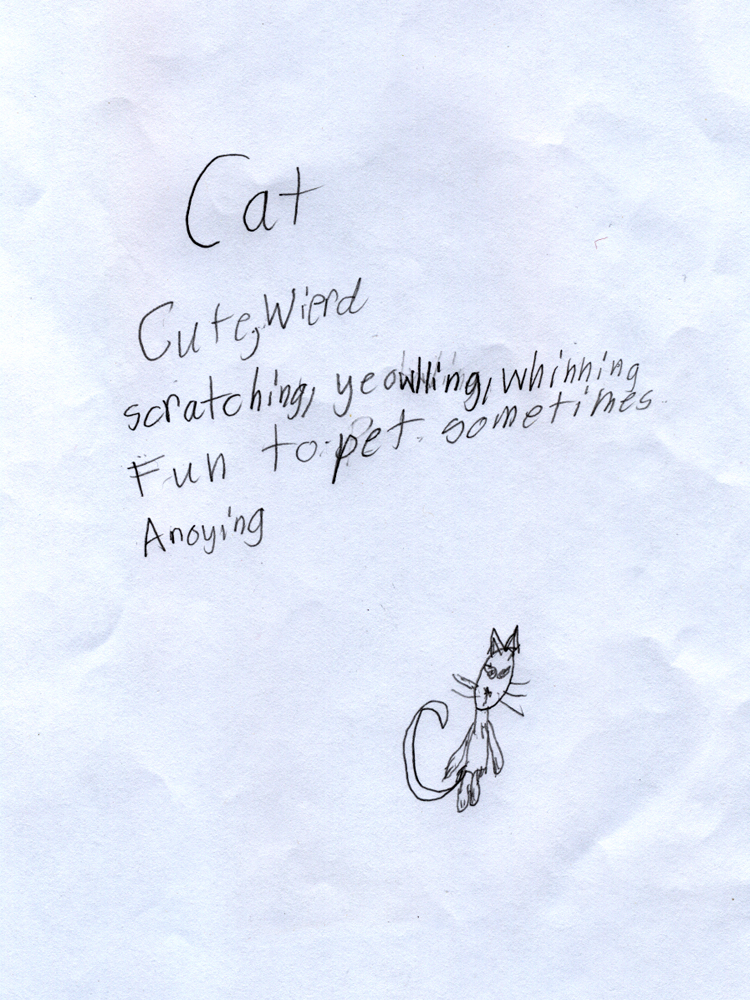 Cat
Cute, Wierd
scratching, yeowlling, whinning
Fun to pet sometimes
Anoying